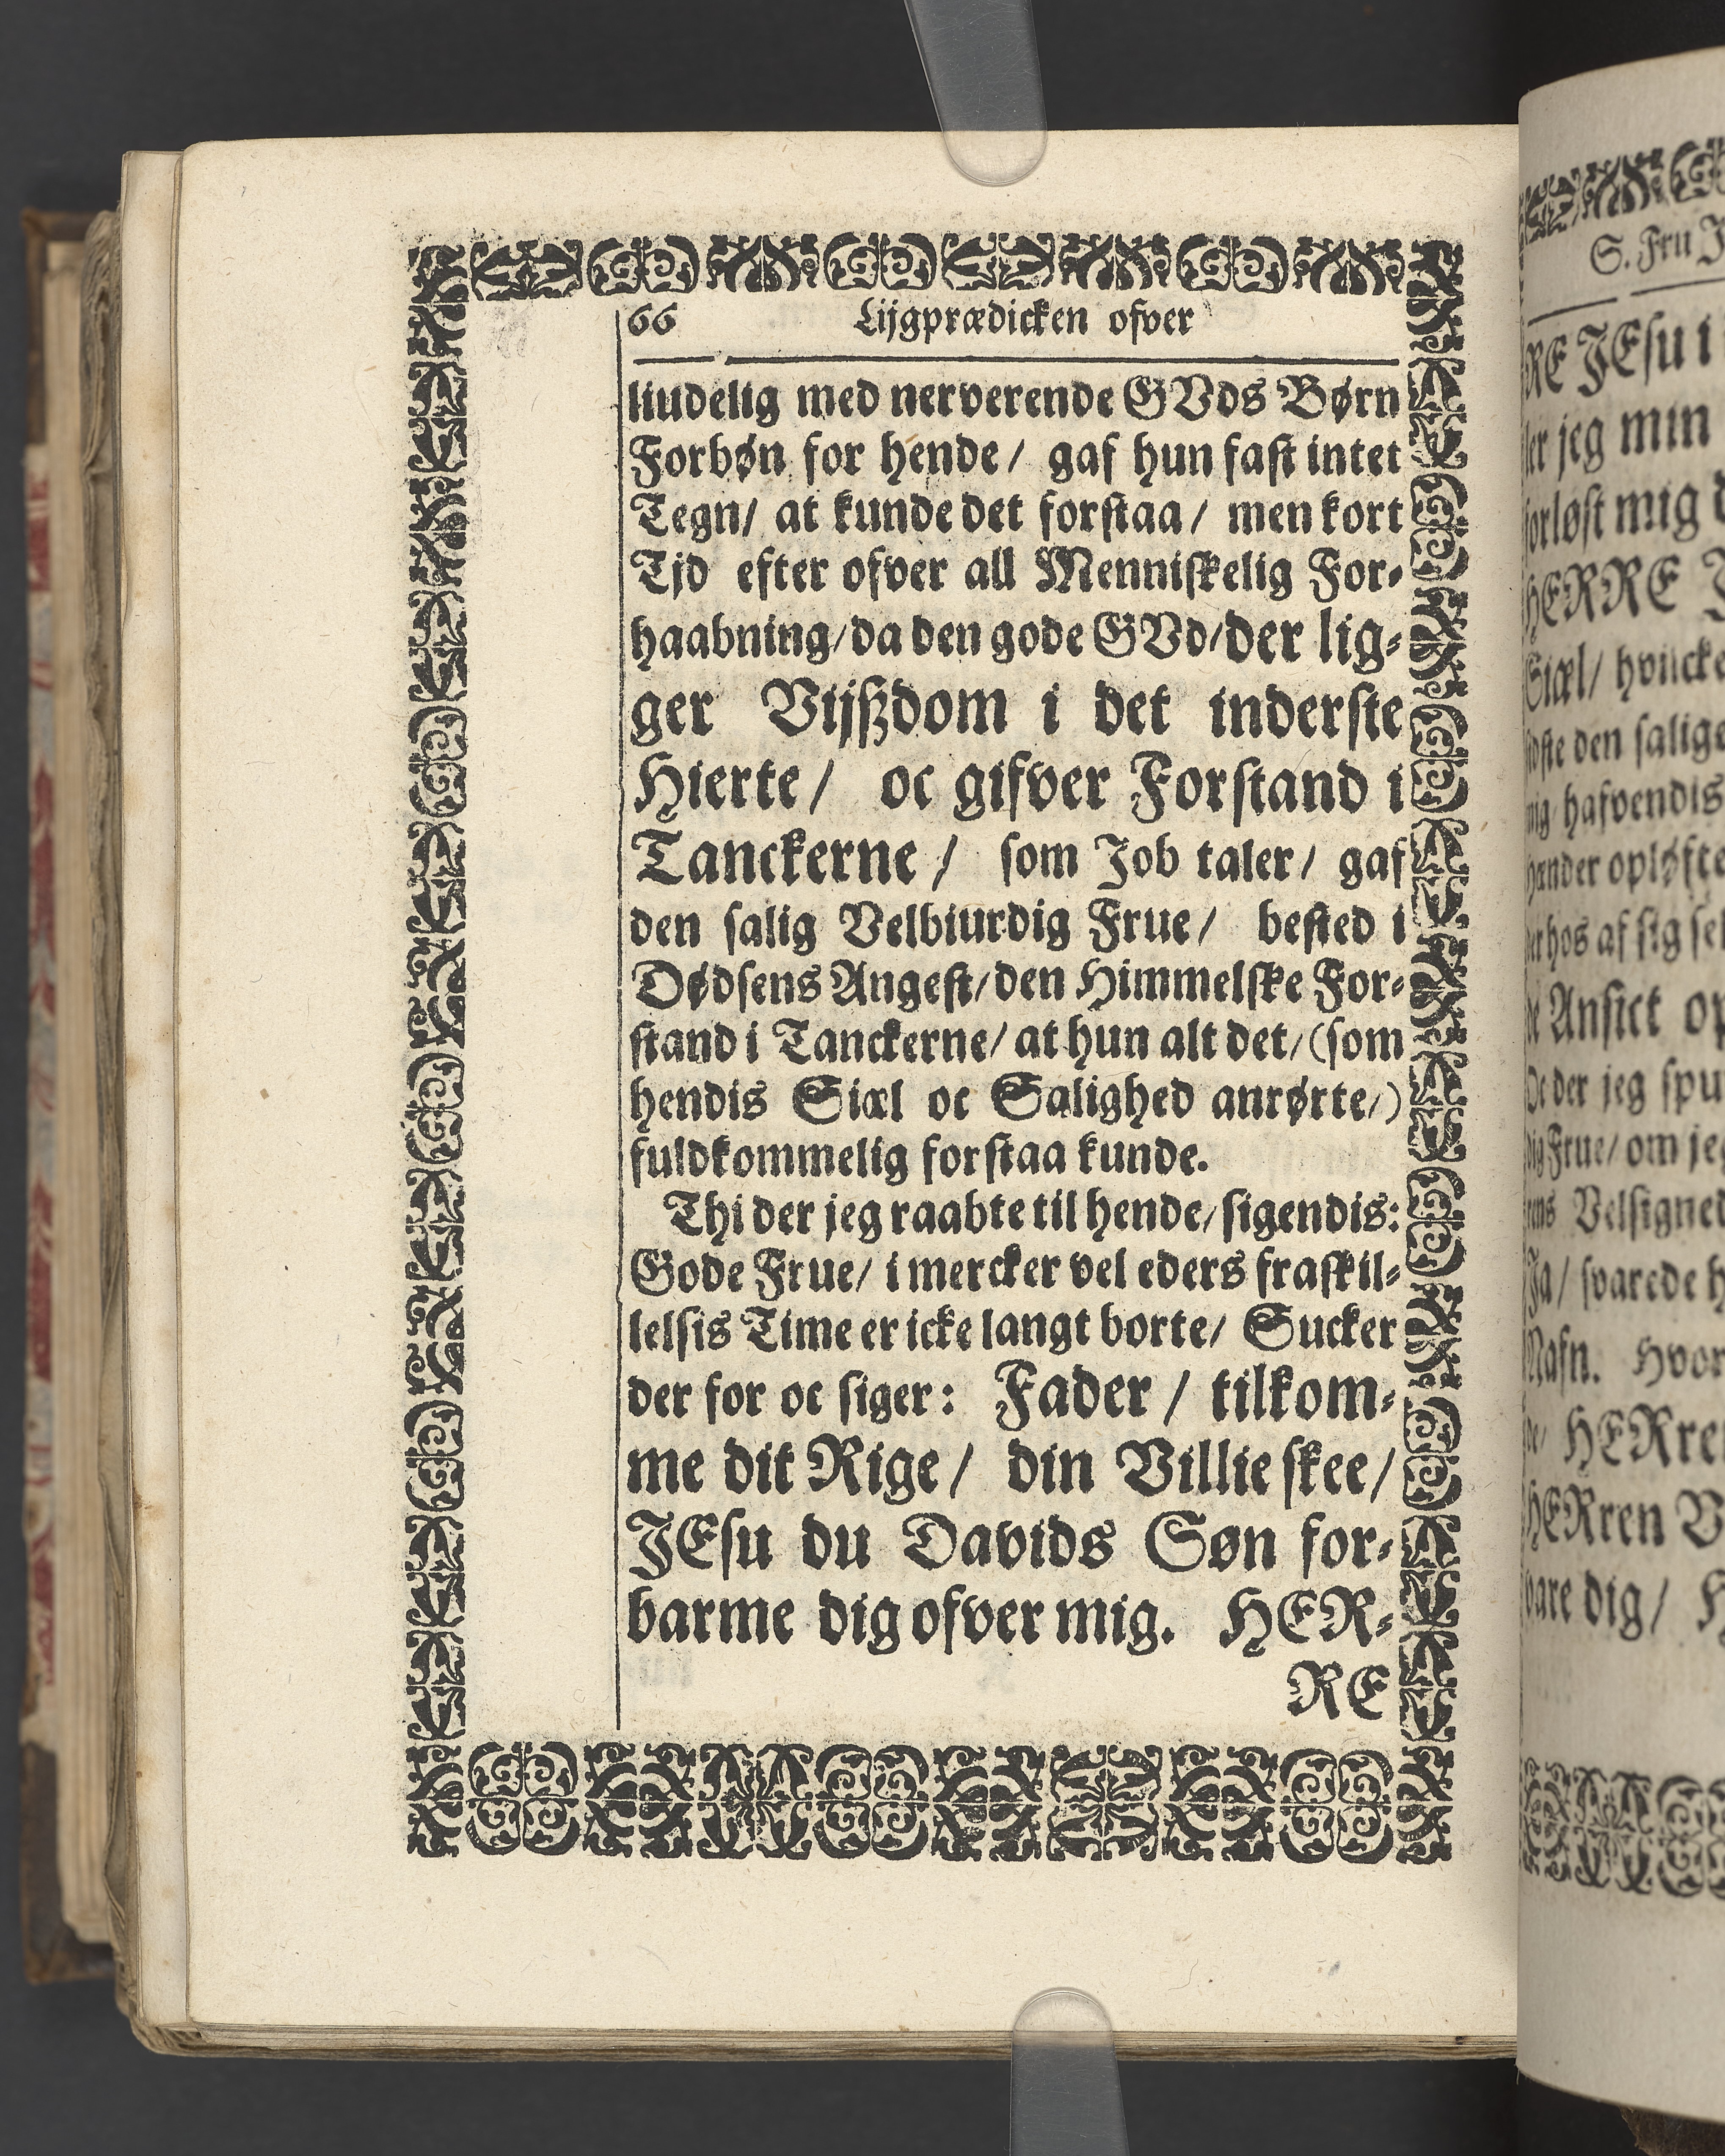 66 Lijgprædicken ofver
liudelig med nerverende GVds Børn
Forbøn for hende / gaf hun fast intet
Tegn / at kunde det forstaa / men kort
Tjd efter ofver all Menniskelig For-
haabning / da den gode GVd / der lig-
ger Vijßdom i det inderste
Hierte / oc gifver Forstand i
Tanckerne / som Job taler / gaf
den salig Velbiurdig Frue / bested i
Dødsens Angest / den Himmelske For-
stand i Tanckerne / at hun alt det / (som
hendis Siæl oc Salighed anrørte /)
fuldkommelig forstaa kunde.
Thi der jeg raabte til hende / sigendis:
Gode Frue / i mercker vel eders fraskil-
lelsis Time er icke langt borte / Sucker
der for oc siger: Fader / tilkom-
me dit Rige / din Villie skee /
JEsu du Davids Søn for-
barme dig ofver mig. HER-
RE
S. Fru J
RE JEsu i
jeg min
forløst mig
HERRE
Siæl / hvilcke
den salige
hafvendis
Hænder opløfte
hos af sig
Ansict op
Oc der jeg spu
Frue / om jeg
Velsigned
Ja / svarede h
Nafn. Hvor
HERren
HERren V
vare dig / H